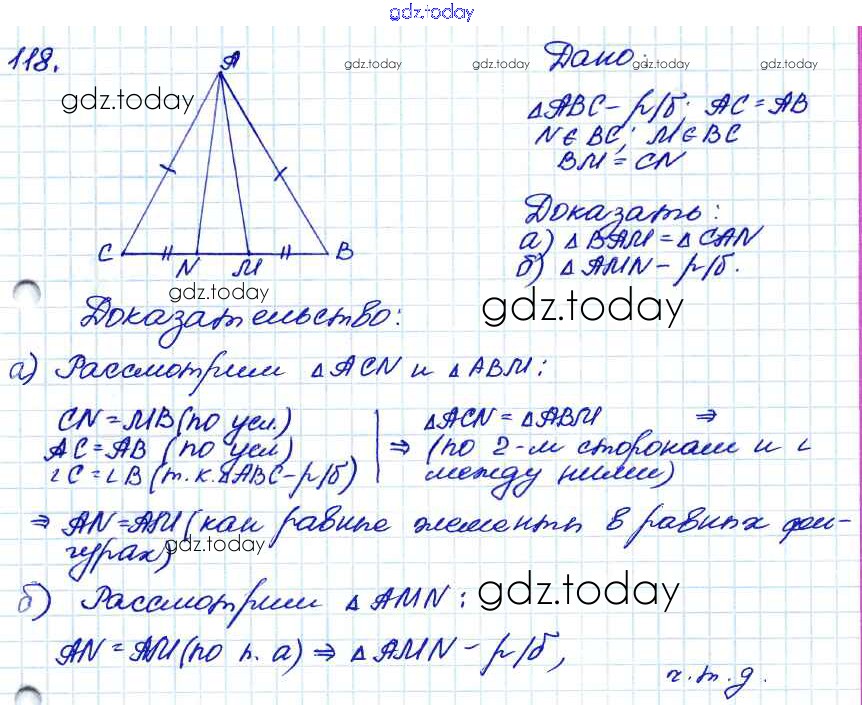 gdz.today
118.
A
Дано:
gdz.today gdz.today gdz.today
gdz.today
△ABC – р/б; AC = AB
N ∈ BC; M ∈ BC
BM = CN
Доказать:
а) △BAM = △CAN
б) △AMN – р/б.
C N M B
gdz.today
gdz.today
Доказательство:
а) Рассмотрим △ACN и △ABM:
CN = MB (по усл.)
AC = AB (по усл)
∠C = ∠B (т.к. △ABC – р/б)
⇒ △ACN = △ABM ⇒
(по 2-м сторонам и ∠
между ними)
⇒ AN = AM (как равные элементы в равных фи-
гурах)
gdz.today
б) Рассмотрим △AMN:
gdz.today
AN = AM (по п. а) ⇒ △AMN – р/б,
ч.т.д.